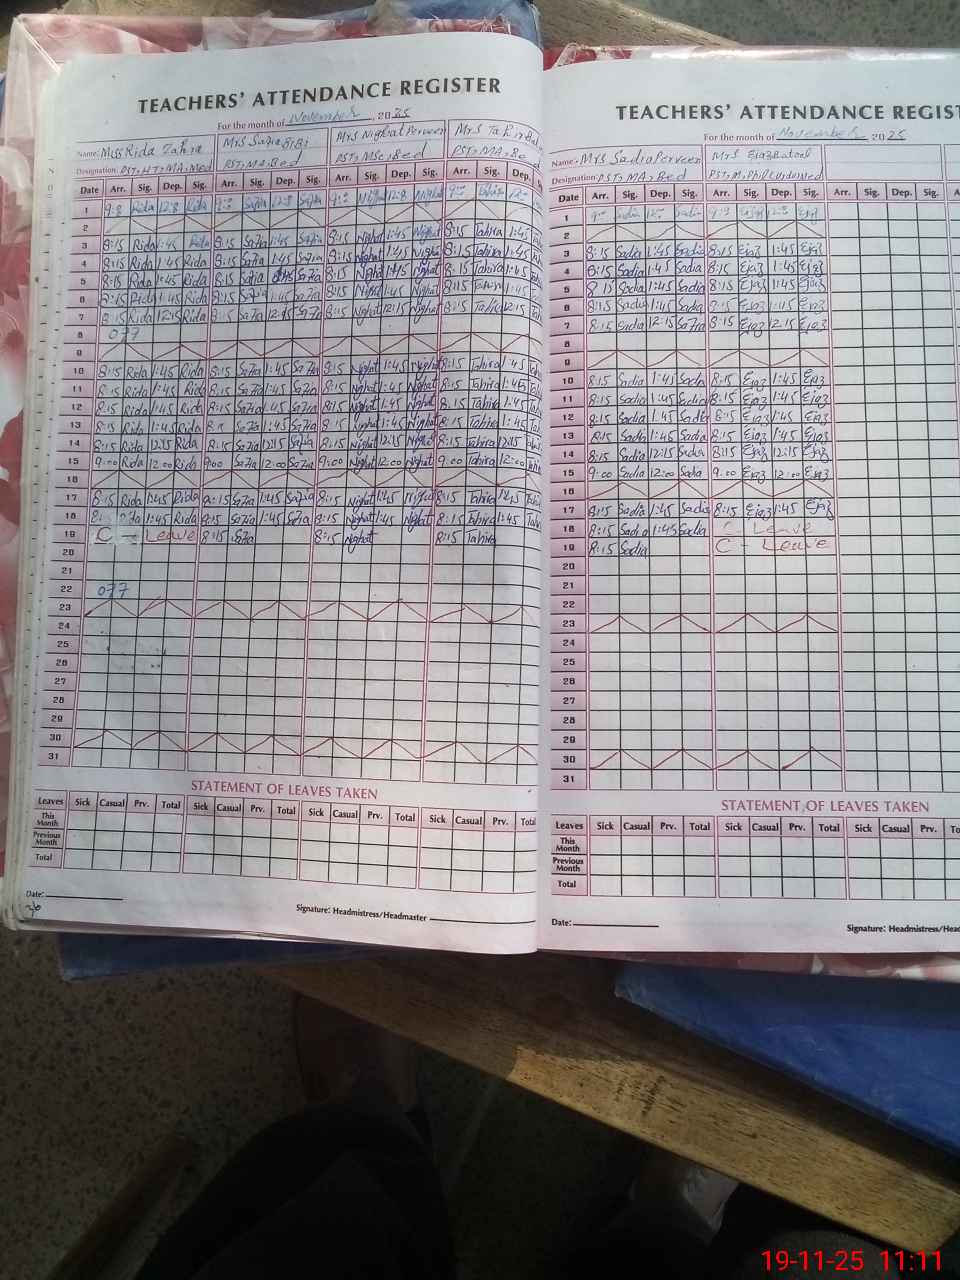 TEACHERS' ATTENDANCE REGISTER
For the month of November, 2025
Name: Miss Rida Zahra Mrs Safia BiBi Mrs Nighat Perveen Mrs Tahira
Designation: PST, HT, MA, Med PST, MA, Bed PST, MSc, Bed PST, MA, Bed
Date Arr. Sig. Dep. Sig. Arr. Sig. Dep. Sig. Arr. Sig. Dep. Sig. Arr. Sig. Dep.
1 Rida Rida Safia Safia Nighat Nighat
2
3 8:15 Rida 1:45 Rida 8:15 Safia 1:45 Safia 8:15 Nighat 1:45 Nighat 8:15 Tahira 1:45
4 8:15 Rida 1:45 Rida 8:15 Safia 1:45 Safia 8:15 Nighat 1:45 Nighat 8:15 Tahira 1:45
5 8:15 Rida 1:45 Rida 8:15 Safia 1:45 Safia 8:15 Nighat 1:45 Nighat 8:15 Tahira 1:45
6 8:15 Rida 1:45 Rida 8:15 Safia 1:45 Safia 8:15 Nighat 1:45 Nighat 8:15 Tahira 1:45
7 8:15 Rida 12:15 Rida 8:15 Safia 12:15 Safia 8:15 Nighat 12:15 Nighat 8:15 Tahira 12:15
8
9
10 8:15 Rida 1:45 Rida 8:15 Safia 1:45 Safia 8:15 Nighat 1:45 Nighat 8:15 Tahira 1:45
11 8:15 Rida 1:45 Rida 8:15 Safia 1:45 Safia 8:15 Nighat 1:45 Nighat 8:15 Tahira 1:45
12 8:15 Rida 1:45 Rida 8:15 Safia 1:45 Safia 8:15 Nighat 1:45 Nighat 8:15 Tahira 1:45
13 8:15 Rida 1:45 Rida Safia 1:45 Safia 8:15 Nighat 1:45 Nighat 8:15 Tahira 1:45
14 8:15 Rida 12:15 Rida 8:15 Safia 12:15 Safia 8:15 Nighat 12:15 Nighat 8:15 Tahira 12:15
15 9:00 Rida 12:00 Rida 9:00 Safia 12:00 Safia 9:00 Nighat 12:00 Nighat 9:00 Tahira 12:00
16
17 8:15 Rida 1:45 Rida 8:15 Safia 1:45 Safia 8:15 Nighat 1:45 Nighat 8:15 Tahira 1:45
18 1:45 Rida 8:15 Safia 1:45 Safia 8:15 Nighat 1:45 Nighat 8:15 Tahira 1:45
19 C - Leave 8:15 Safia 8:15 Nighat 8:15 Tahira
20
21
22
23
24
25
26
27
28
29
30
31
STATEMENT OF LEAVES TAKEN
Leaves Sick Casual Prv. Total Sick Casual Prv. Total Sick Casual Prv. Total Sick Casual Prv. Total
This Month
Previous Month
Total
Date:
Signature: Headmistress/Headmaster
TEACHERS' ATTENDANCE REGIST
For the month of November 2025
Name: Mrs Sadia Perveen Mrs Ejaz Batool
Designation: PST, MA, Bed PST, M.Phil
Date Arr. Sig. Dep. Sig. Arr. Sig. Dep. Sig. Arr. Sig. Dep. Sig. Arr.
1 Sadia Sadia Ejaz Ejaz
2
3 8:15 Sadia 1:45 Sadia 8:15 Ejaz 1:45 Ejaz
4 8:15 Sadia 1:45 Sadia 8:15 Ejaz 1:45 Ejaz
5 8:15 Sadia 1:45 Sadia 8:15 Ejaz 1:45 Ejaz
6 8:15 Sadia 1:45 Sadia 8:15 Ejaz 1:45 Ejaz
7 8:15 Sadia 12:15 8:15 Ejaz 12:15 Ejaz
8
9
10 8:15 Sadia 1:45 Sadia 8:15 Ejaz 1:45 Ejaz
11 8:15 Sadia 1:45 Sadia 8:15 Ejaz 1:45 Ejaz
12 8:15 Sadia 1:45 Sadia 8:15 Ejaz 1:45 Ejaz
13 8:15 Sadia 1:45 Sadia 8:15 Ejaz 1:45 Ejaz
14 8:15 Sadia 12:15 Sadia 8:15 Ejaz 12:15 Ejaz
15 9:00 Sadia 12:00 Sadia 9:00 Ejaz 12:00 Ejaz
16
17 8:15 Sadia 1:45 Sadia 8:15 Ejaz 1:45 Ejaz
18 8:15 Sadia 1:45 Sadia C - Leave
19 8:15 Sadia C - Leave
20
21
22
23
24
25
26
27
28
29
30
31
STATEMENT OF LEAVES TAKEN
Leaves Sick Casual Prv. Total Sick Casual Prv. Total Sick Casual Prv.
This Month
Previous Month
Total
Date:
Signature: Headmistress/Head
19-11-25 11:11